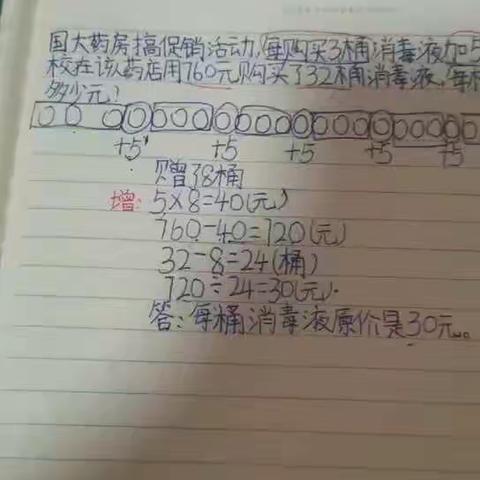 国大药房搞促销活动,每购买3桶消毒液加5
校在该药店用760元购买了32桶消毒液,每
多少元?
+5 +5 +5 +5 +5
赠了8桶
增: 5×8=40(元)
760-40=720(元)
32-8=24(桶)
720÷24=30(元).
答:每桶消毒液原价是30元。